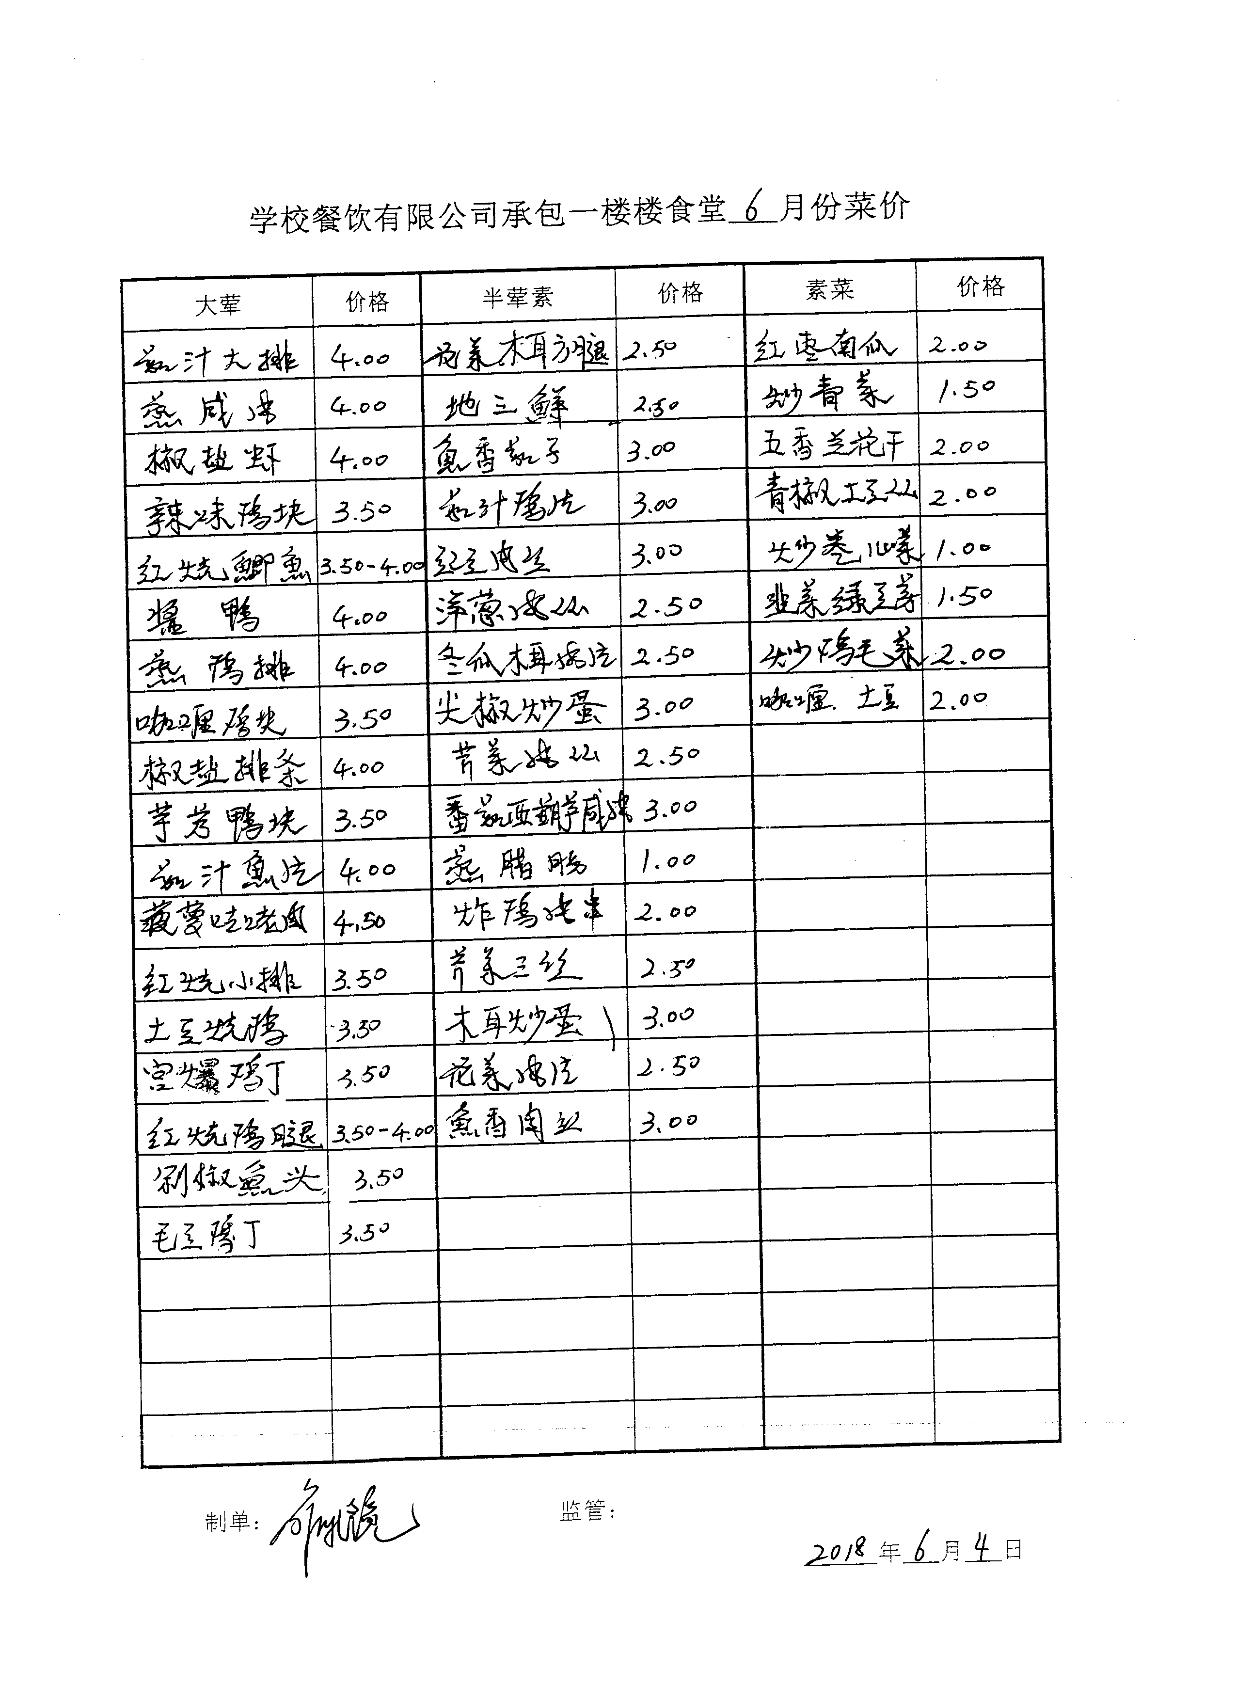 学校餐饮有限公司承包一楼楼食堂 6 月份菜价
大荤 价格 半荤素 价格 素菜 价格
茄汁大排 4.00 花菜木耳方腿 2.50 红枣南瓜 2.00
蒸咸肉 4.00 地三鲜 2.50 炒青菜 1.50
椒盐虾 4.00 魚香茄子 3.00 五香兰花干 2.00
辣味鸡块 3.50 茄汁鸡片 3.00 青椒土豆丝 2.00
红烧鲫魚 3.50-4.00 豇豆肉丝 3.00 炒卷心菜 1.00
酱鸭 4.00 洋葱肉丝 2.50 韭菜绿豆芽 1.50
蒸鸡排 4.00 冬瓜木耳肉片 2.50 炒鸡毛菜 2.00
咖喱鸡块 3.50 尖椒炒蛋 3.00 咖喱土豆 2.00
椒盐排条 4.00 芹菜肉丝 2.50
芋艿鸭块 3.50 番茄西葫芦咸肉 3.00
茄汁魚片 4.00 蒸腊肠 1.00
菠萝咕咾肉 4.50 炸鸡肉串 2.00
红烧小排 3.50 芹菜三丝 2.50
土豆烧鸡 3.50 木耳炒蛋 3.00
宫爆鸡丁 3.50 花菜肉片 2.50
红烧鸡腿 3.50-4.00 魚香肉丝 3.00
剁椒魚头 3.50
毛豆鸡丁 3.50
制单: 监管:
2018 年 6 月 4 日